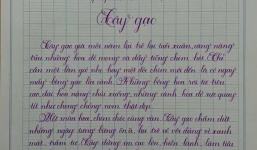 Cây gạo
Cây gạo già mỗi năm lại trở lại tuổi xuân, càng nặng
trĩu những hoa đỏ mọng và đầy tiếng chim hót. Chỉ
cần một làn gió nhẹ hay một đôi chim mới đến là có ngay
mấy bông gạo lìa cành. Những bông hoa rơi từ trên
cao, đài hoa nặng chúi xuống, những cánh hoa đỏ rực quay
tít như chong chóng nom thật đẹp.
Hết mùa hoa, chim chóc cũng vãn. Cây gạo chấm dứt
những ngày tưng bừng ồn ã, lại trở về với dáng vẻ xanh
mát, trầm tư. Cây đứng im cao lớn, hiền lành, làm tiêu